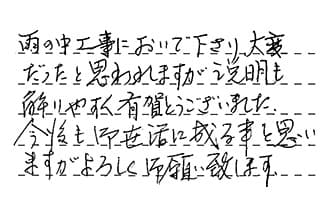 雨の中工事においで下さり、大変
だったと思われますが説明も
解りやすく有賀とうございました.
今後も御世話に成る事と思い
ますがよろしく御願い致します.